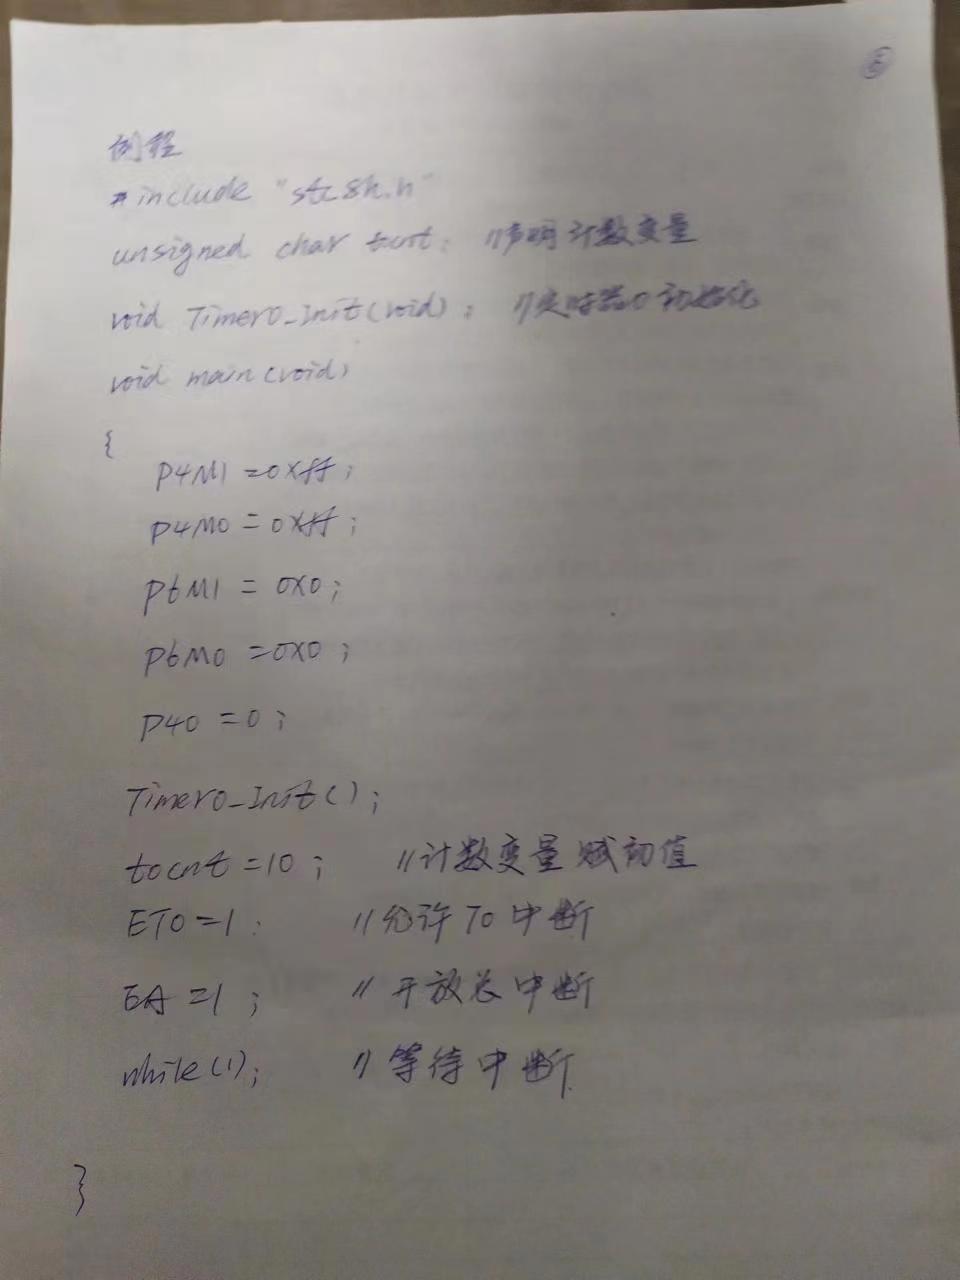 ⑥
例程
#include "stc8h.h"
unsigned char tcnt; //声明计数变量
void Timer0_Init(void); //定时器0初始化
void main(void)
{
P4M1 = 0Xff;
P4M0 = 0Xff;
P6M1 = 0X0;
P6M0 = 0X0;
P40 = 0;
Timer0_Init();
tocnt = 10; //计数变量赋初值
ET0 = 1; //允许T0中断
EA = 1; //开放总中断
while(1); //等待中断.
}